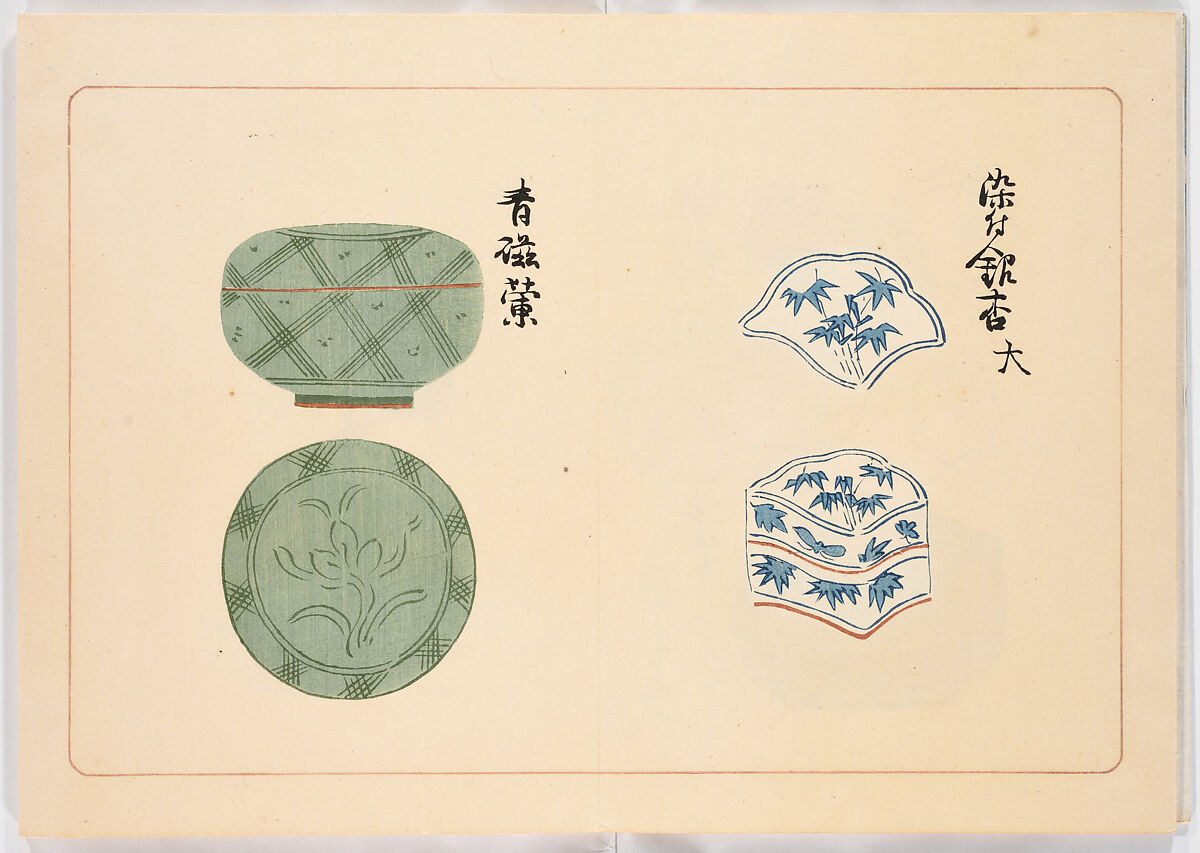 染付銀杏 大
青磁